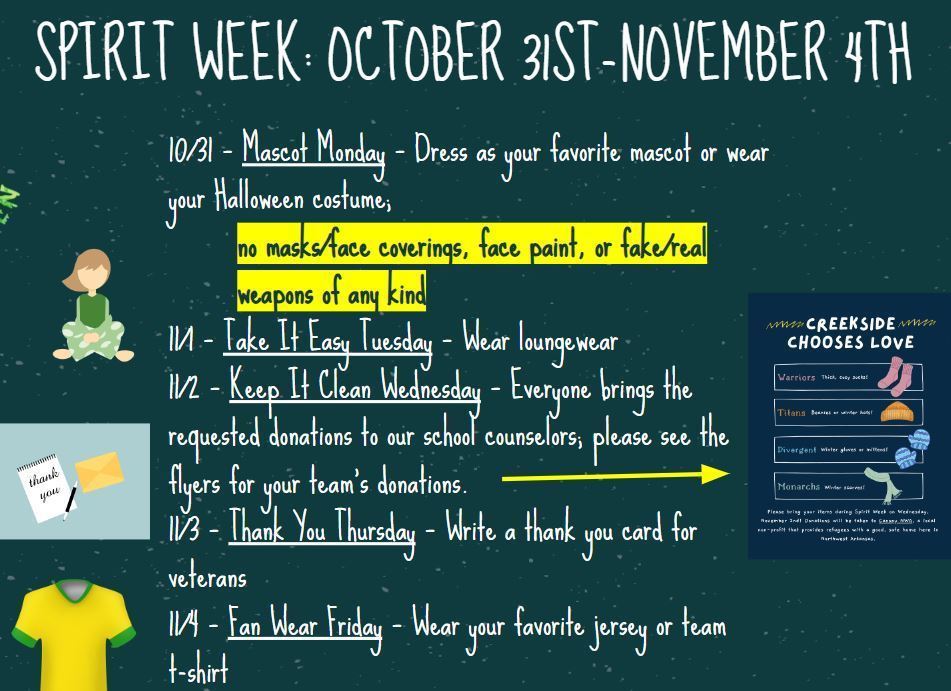 SPIRIT WEEK: OCTOBER 31ST-NOVEMBER 4TH
10/31 - Mascot Monday - Dress as your favorite mascot or wear
your Halloween costume;
no masks/face coverings, face paint, or fake/real
weapons of any kind
11/1 - Take It Easy Tuesday - Wear loungewear
11/2 - Keep It Clean Wednesday - Everyone brings the
requested donations to our school counselors; please see the
flyers for your team's donations.
11/3 - Thank You Thursday - Write a thank you card for
veterans
11/4 - Fan Wear Friday - Wear your favorite jersey or team
t-shirt
thank
you
CREEKSIDE
CHOOSES LOVE
Warriors Thick, cozy socks!
Titans Beanies or winter hats!
Divergent Winter gloves or mittens!
Monarchs Winter scarves!
Please bring your items during Spirit Week on Wednesday,
November 2nd! Donations will be taken to Canopy NWA, a local
non-profit that provides refugees with a good, safe home here in
Northwest Arkansas.